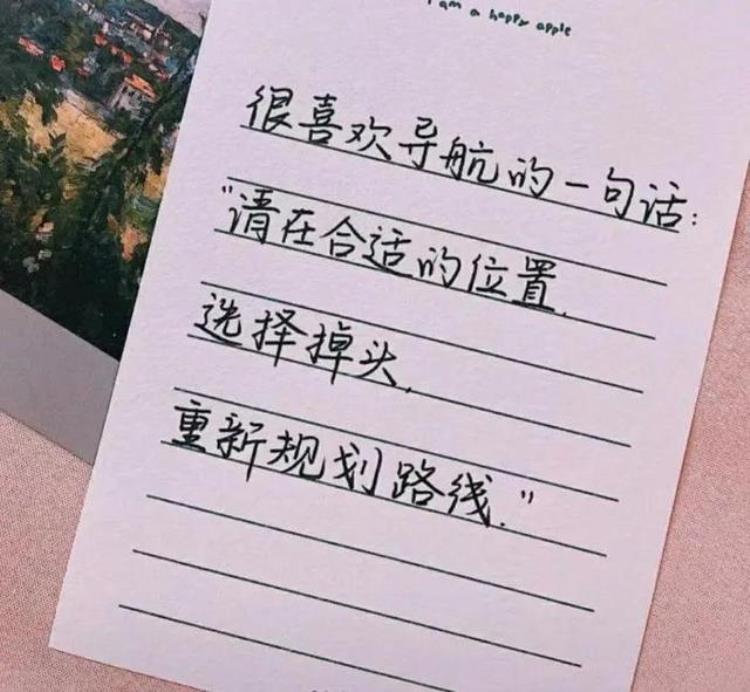 I am a happy apple
很喜欢导航的一句话:
"请在合适的位置.
选择掉头.
重新规划路线."